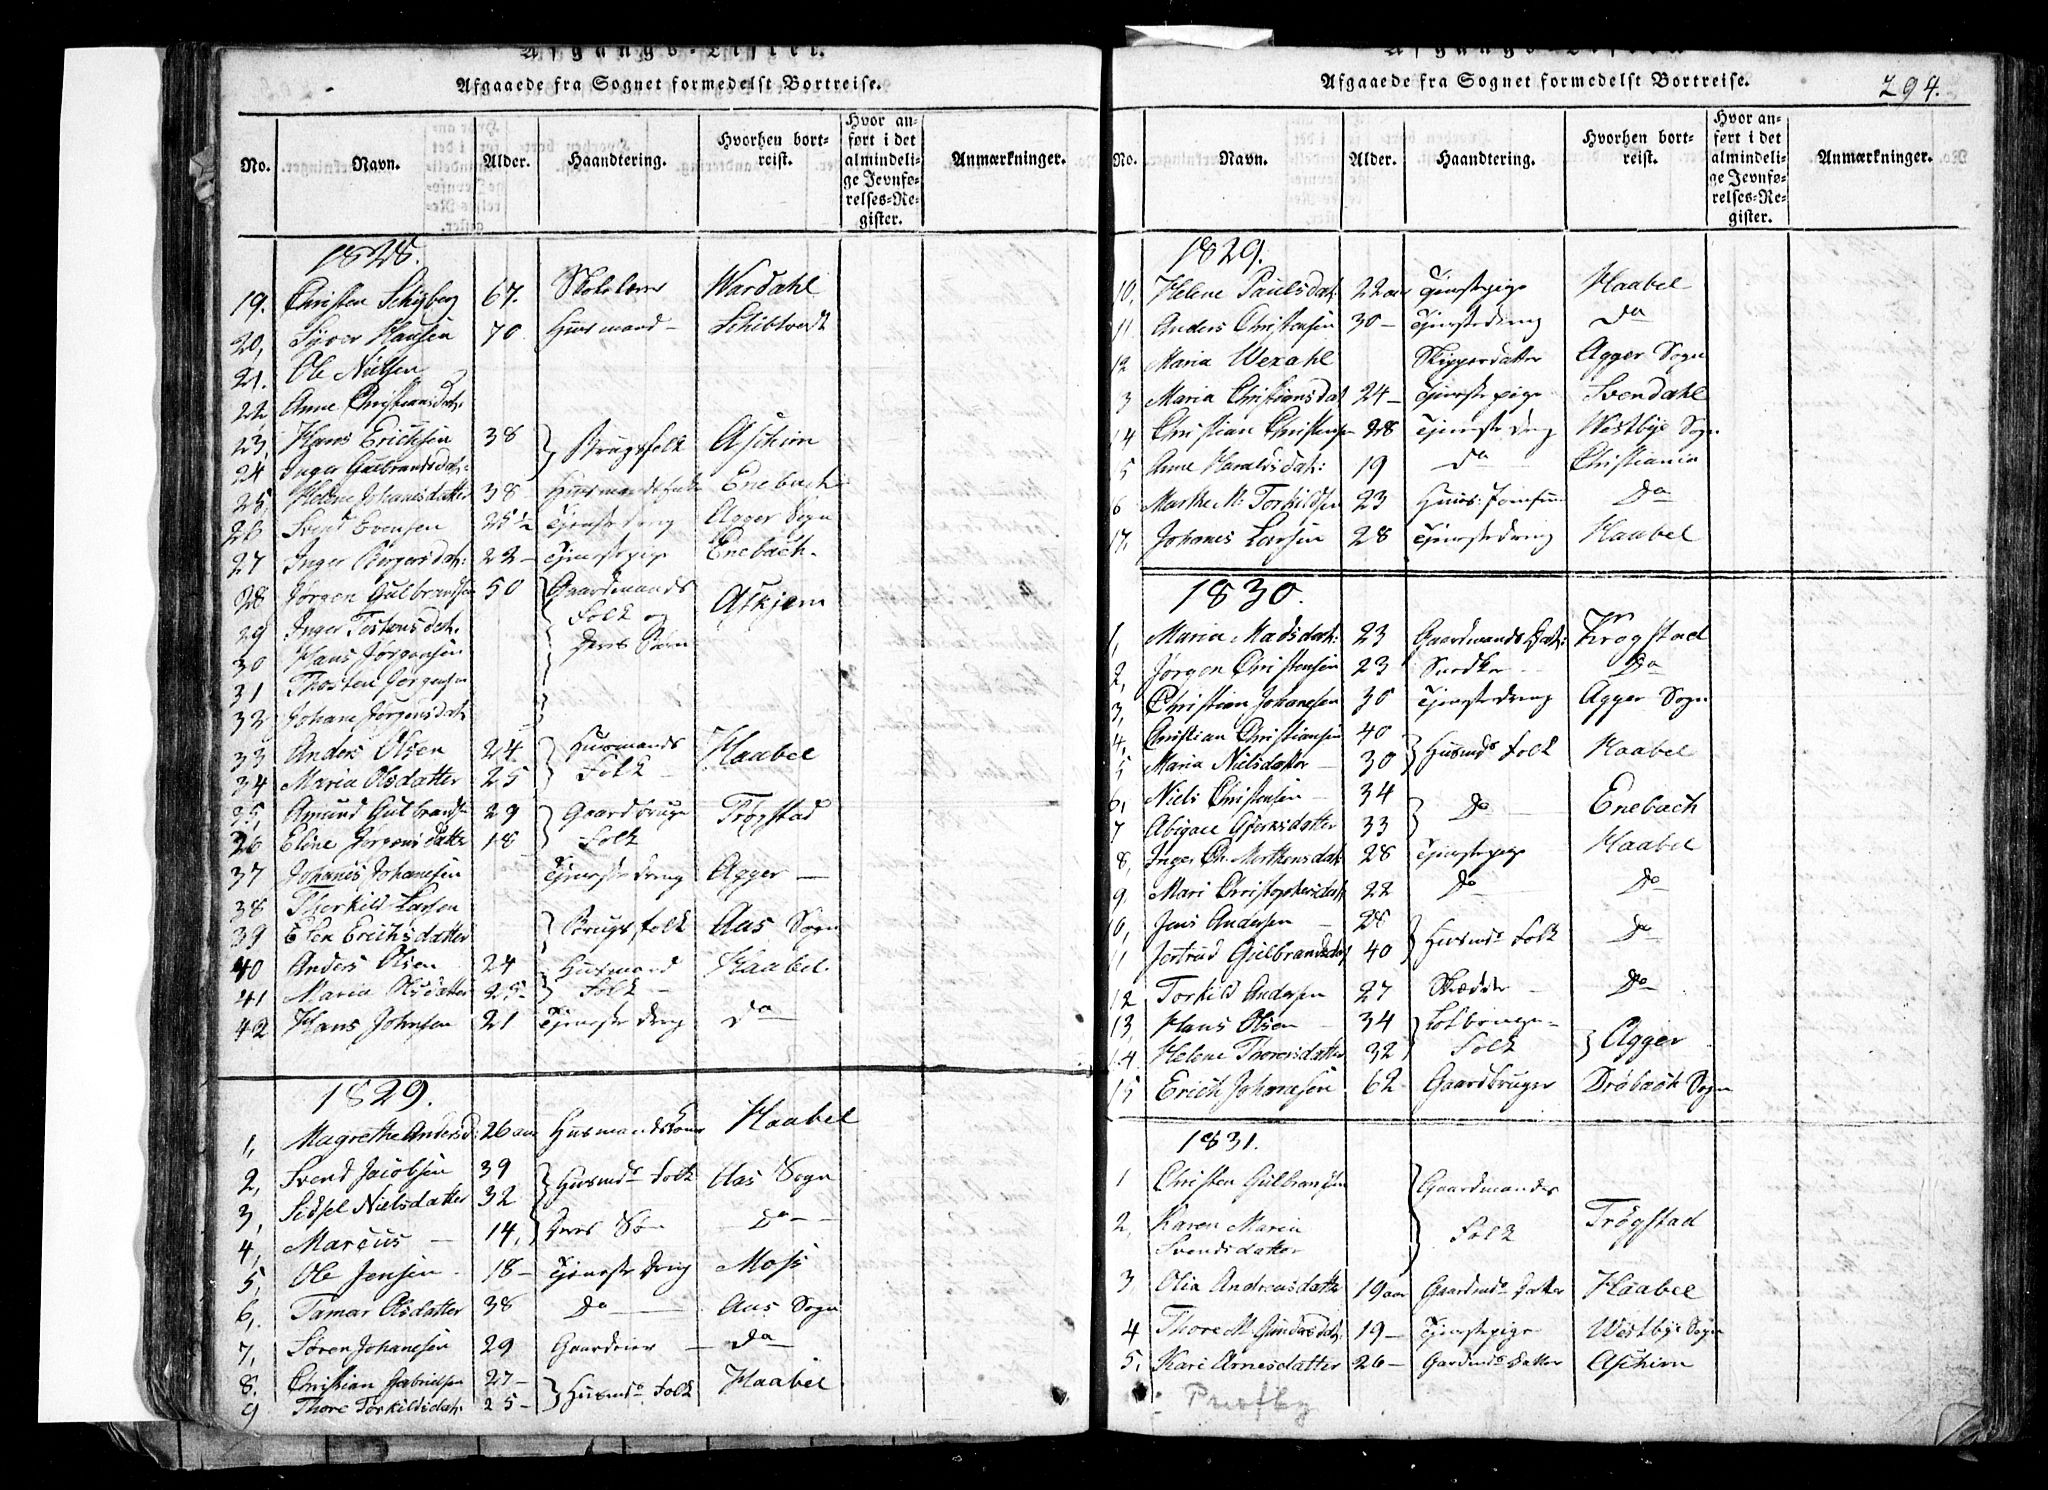 Afgangs-Lister.
Afgaaede fra Sognet formedelst Bortreise.
No. Navn. Alder. Haandtering. Hvorhen bortreist. Hvor anført i det almindelige Jevnførelses-Register. Anmærkninger.
1828.
19. Christen Schiberg 67. Skolelærer Wardahl
20, Syver Hansen 70 Huusmand - Schibtvedt
21. Ole Nielsen
22, Anne Christiansdat:
23, Hans Erichsen 38 } Brugsfolk Aschim
24 Inger Gulbrandsdat:
25, Helene Johanisdatter 38 - Enebach
26 Svend Evensen 25½ Tjenestedreng Agger Sogn
27 Inger Børgersdat: 22 - Tjenestepige Enebach.
28 Jørgen Gulbransen 50 } Gaardmands Folk og deres Børn Askjem
29 Inger Tostensdat.
30 Hans Jørgensen
31 Thosten Jørgensen
32 Johane Jørgensdat
33 Anders Olsen 24. } Huusmands Folk Haabel
34 Maria Olsdatter 25
35, Amund Gulbrandsen 29 } Gaardbruger Folk Trøgstad
36 Eline Jørgensdatter 18
37 Johanes Johanesen Tjenestedreng Agger -
38 Therkild Larsen
39 Elen Erichsdatter } Brugsfolk Aas Sogn
40 Anders Olsen 24 Husmand Folk Haabel.
41 Maria Olsdatter 25 -
42 Hans Johnsen 21 Tjenestedreng Do
1829.
1, Magrethe Andersd: 26 aar Husmandskone Haabel
2, Svend Jacobsen 39 } Husmds Folk Aas Sogn
3, Sidsel Nielsdatter 32
4, Marcus - 14, } deres Søn - Do -
5, Ole Jensen - 18 - Tjenestedreng Moss
6, Tamar Olsdatter 38 Do Aas Sogn
7, Søren Johanesen 29 Gaardeier - Do
8. Christian Gabrielsen 27 - } Husmds Folk Haabel
9 Thore Torkildsdat. 25 -
Afgangs-Lister.
Afgaaede fra Sognet formedelst Bortreise. 294.
No. Navn. Alder. Haandtering. Hvorhen bortreist. Hvor anført i det almindelige Jevnførelses-Register. Anmærkninger.
1829.
10, Helene Paulsdat: 22 aar Tjenestepige Haabel
11, Anders Christensen 30 - Tjenestedreng Do
12 Maria Wexahl Skipperdatter Agger Sogn
3 Maria Christiansdat 24 - Tjenestepige Svendahl
14 Christian Christensen 28 Tjenestedreng Westbye Sogn
5 Anne Haraldsdat: 19 Do Christiania
6 Marthe M: Torkildsen 23 Huus: Jomfru Do
17, Johanes Larsen 28 Tjenestedreng Haabel
1830.
1, Maria Madsdat: 23 Gaardmands Dat: Krogstad
2, Jørgen Christensen 23 Snedker Do
3, Christian Johanesen 30 Tjenestedreng Agger Sogn
4, Christian Christiansen 40 } Husmds Folk Haabel
5 Maria Nielsdatter - 30
6, Niels Christensen - 34 } Do Enebach
7 Abigael 33
8, Inger Ch. Morthensdat 28 Tjenestepige Haabel
9 Mari Christophersdat 22 Do Do
10, Jens Andersen - 28 } Husmds Folk Do
11 Jertrud Gulbrandsdat 40
12 Torkild Andersen 27 Skrædder - Do
13, Hans Olsen - 34 } Folk } Agger
14 Helene Thoresdatter 32
15 Erich Johanesen 62 Gaardbruger Drøbach Sogn
1831.
1 Christen Gulbransen } Gaardmands Folk Trøgstad
2, Karen Maria
Svendsdatter
3 Olia Andreasdatter 19 aar Gaardmds Datter Haabel
4 Thore M. Gundersdat. 19 - Tjenestepige Westbye Sogn
5, Kari Arnesdatter 26 - Gardmds Datter Aschim